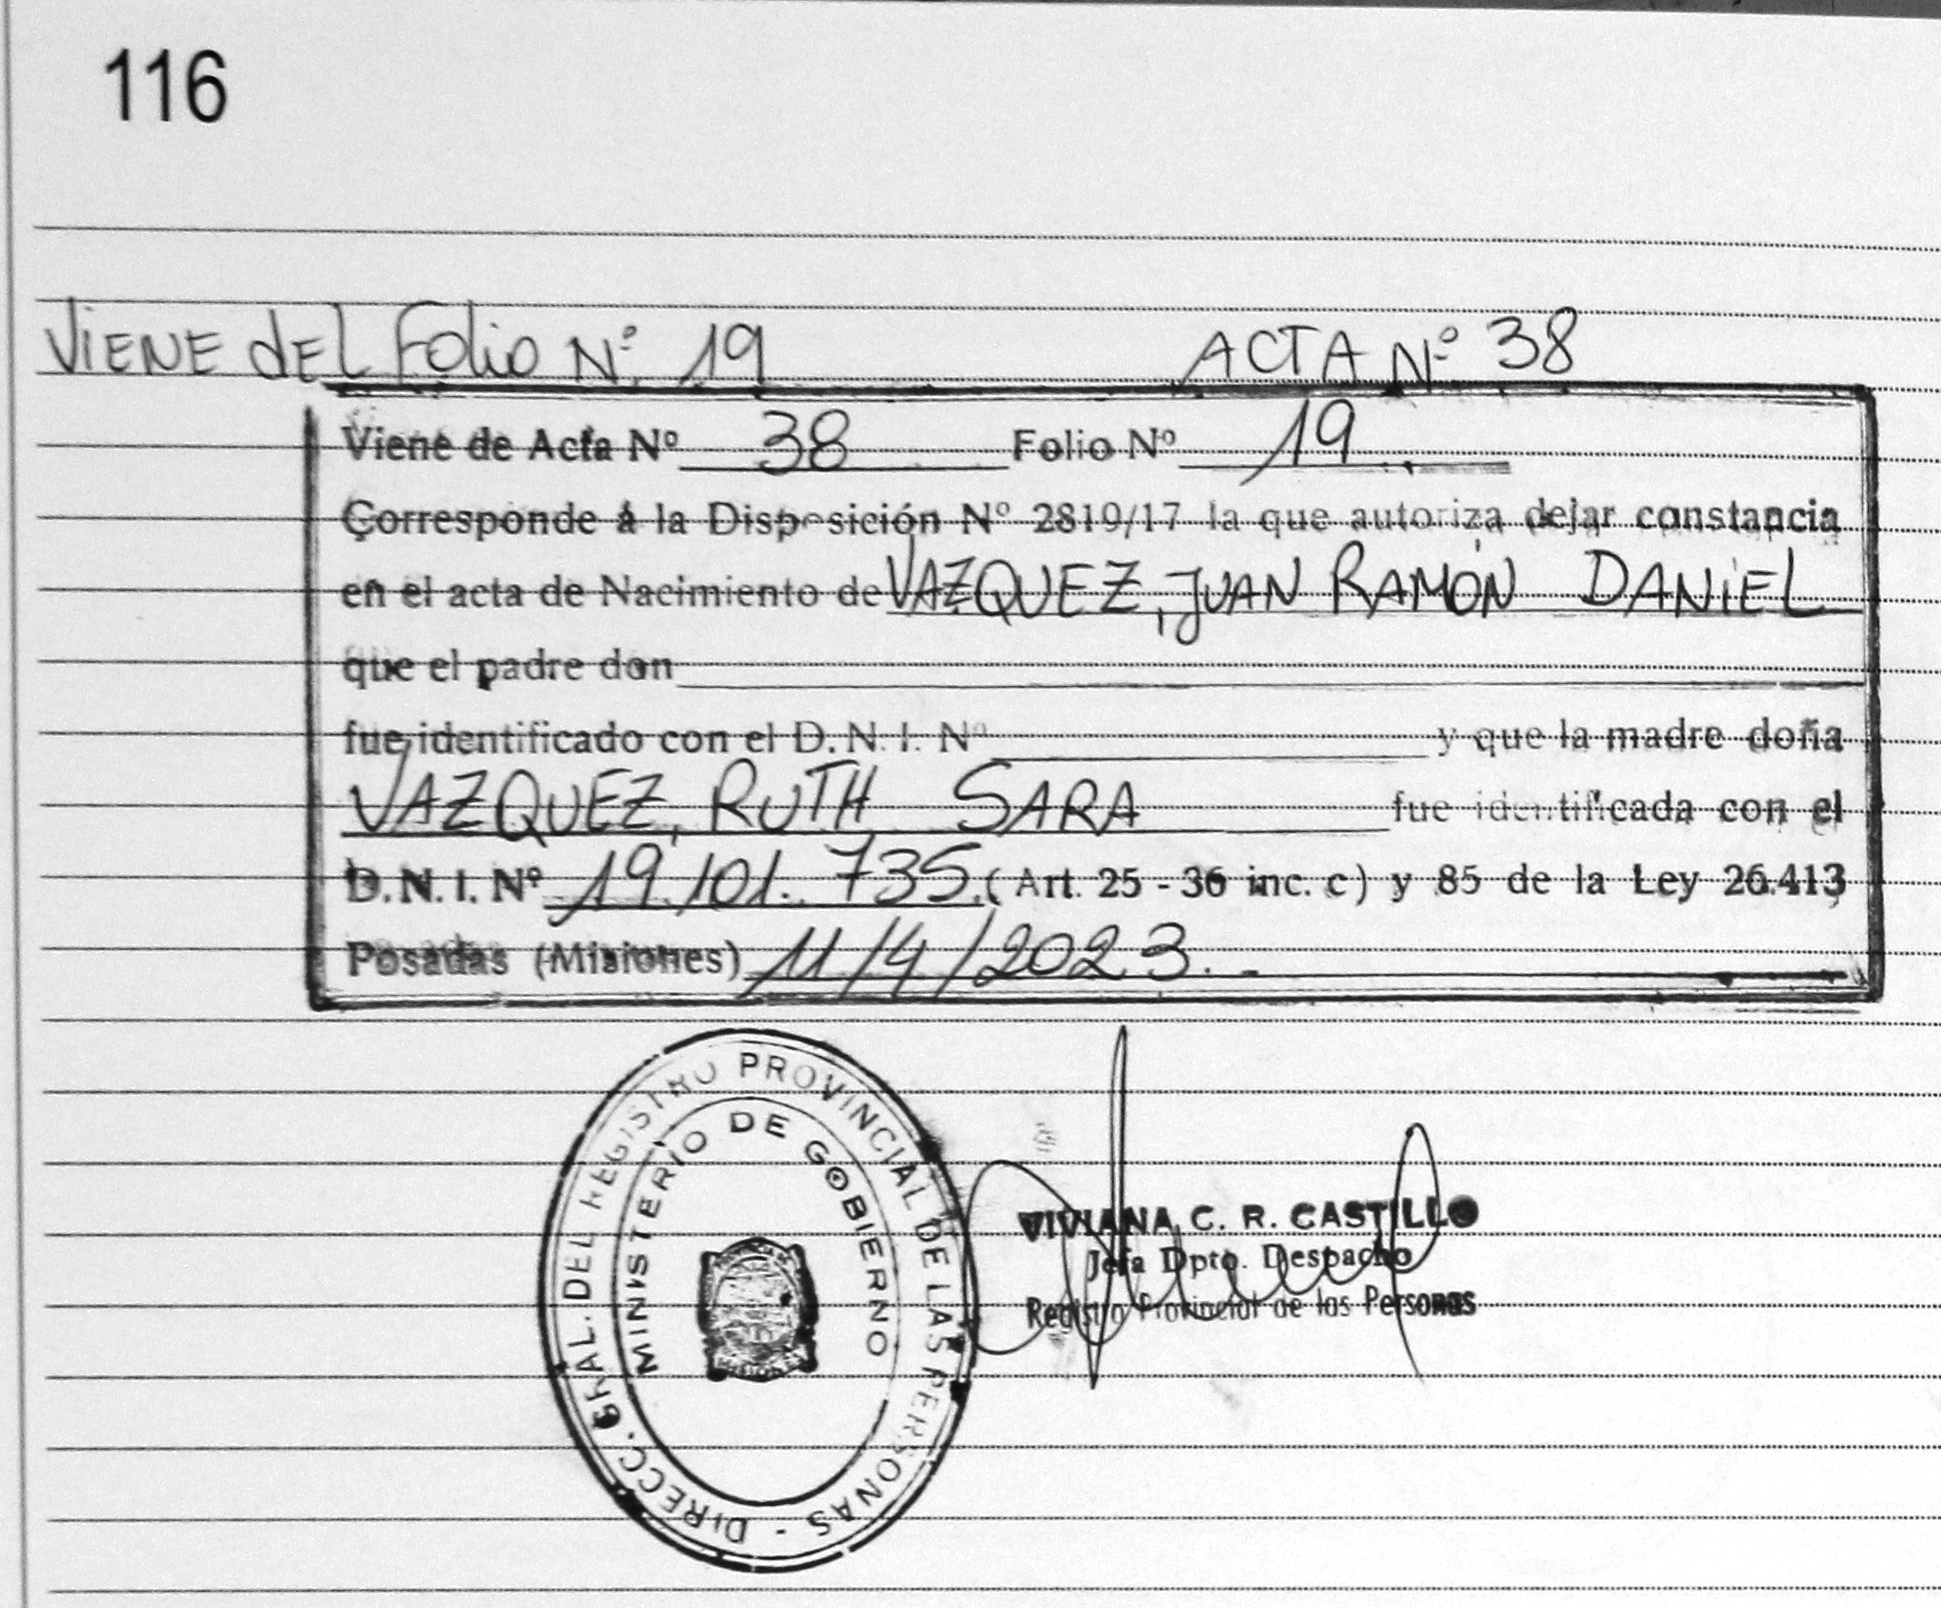 116
VIENE dEL Folio Nº 19 ACTA Nº 38
Viene de Acta Nº 38 Folio Nº 19
Corresponde á la Disposición Nº 2819/17 la que autoriza dejar constancia
en el acta de Nacimiento de VAZQUEZ, JUAN RAMÓN DANiEL
que el padre don
fue identificado con el D. N. I. Nº y que la madre doña
VAZQUEZ, RUTH SARA fue identificada con el
D. N. I. Nº 19.101.735. (Art. 25 - 36 inc. c) y 85 de la Ley 26.413
Posadas (Misiones) 11/4/2023.-
DIRECC. GRAL. DEL REGISTRO PROVINCIAL DE LAS PERSONAS -
MINISTERIO DE GOBIERNO
VIVIANA C. R. CASTILLO
Jefa Dpto. Despacho
Registro Provincial de las Personas